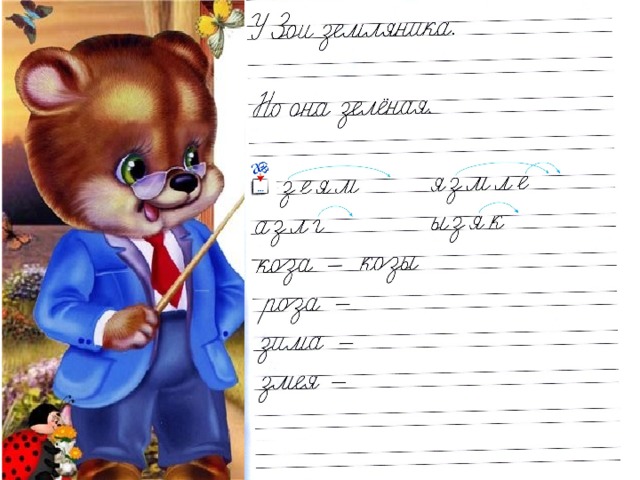 У Зои земляника.
Но она зелёная.
зеям язмле
азлг ызяк
коза – козы
роза –
зима –
змея –